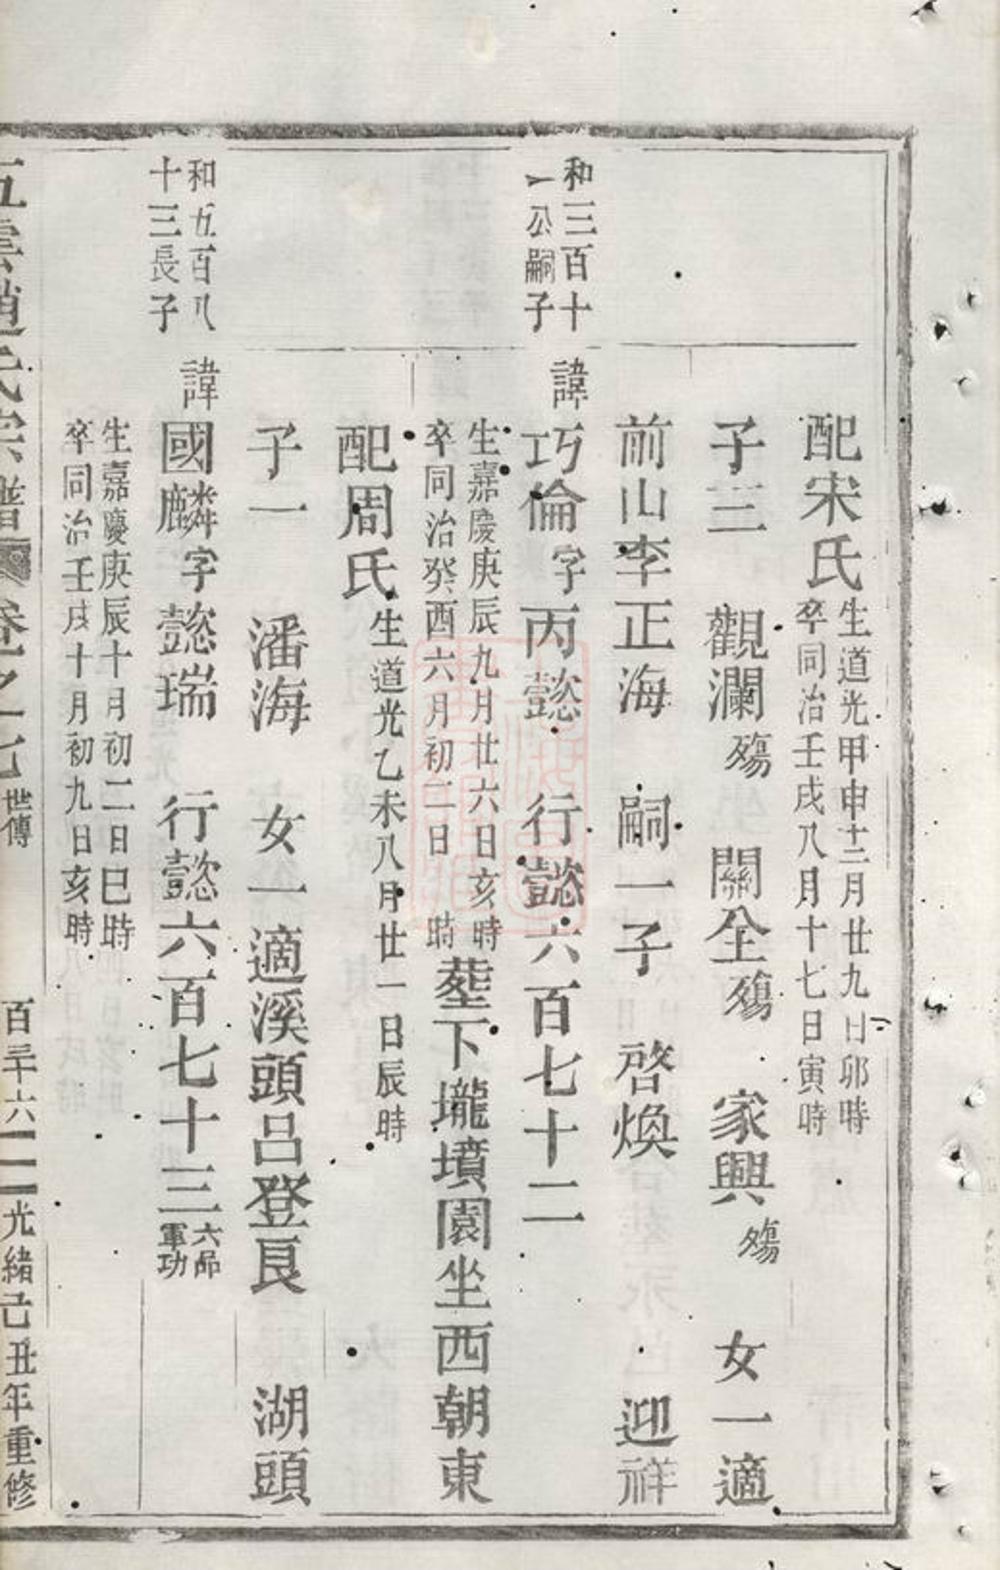 配宋氏
生道光甲申十二月廿九日卯時
卒同治壬戌八月十七日寅時
子三 觀瀾殤 關全殤 家興殤 女一適
前山李正海 嗣一子 啓煥 迎祥
和三百十
一公嗣子
諱巧倫字丙懿 行懿六百七十二
生嘉慶庚辰九月廿六日亥時
卒同治癸酉六月初二日 時
塟下壠墳園坐西朝東
配周氏生道光乙未八月廿一日辰時
子一 潘海 女一適溪頭呂登良 湖頭
和五百八
十三長子
諱國麟字懿瑞 行懿六百七十三
六品
軍功
生嘉慶庚辰十月初二日巳時
卒同治壬戌十月初九日亥時
五雲趙氏宗譜 卷之七 世傳 百三十六 光緒己丑年重修